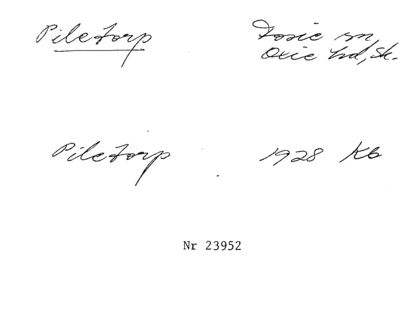 Piletorp Fosie sn,
Oxie hd, Sk.
Piletorp 1928 Kb
Nr 23952